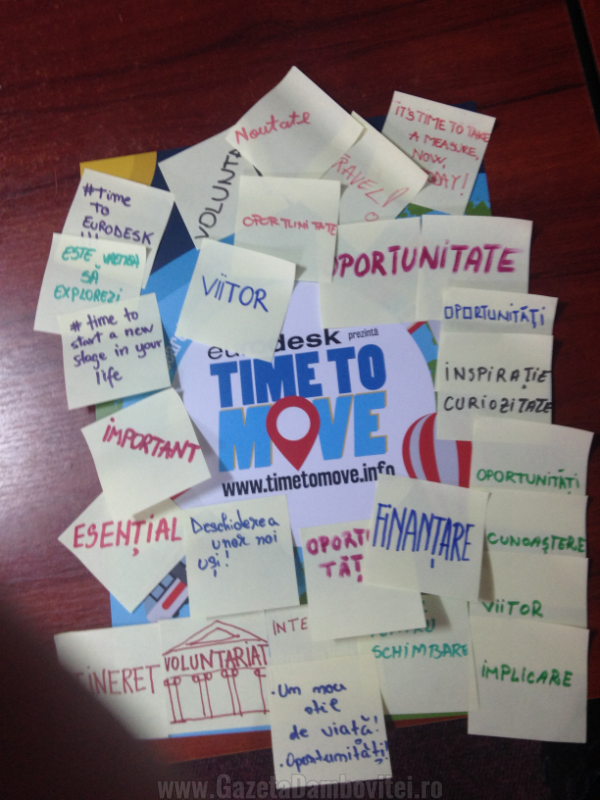 Noutate
IT'S TIME TO TAKE
A MEASURE,
NOW,
VOLUNTA
TRAVEL!
#Time
TO
EURODESK
!!!
OPORTUNITATE
OPORTUNITATE
ESTE VREMEA
SĂ
EXPLOREZI
VIITOR
# time to
start a new
stage in your
life
OPORTUNITĂȚI
eurodesk prezintă
TIME TO
MOVE
www.timetomove.info
INSPIRAȚIE
CURIOZITATE
IMPORTANT
OPORTUNITĂȚI
ESENȚIAL
Deschiderea
unor noi
uși!
OPORTU
TĂȚ
FINANȚARE
CUNOAȘTERE
VIITOR
TINERET
VOLUNTARIAT
INTE
PENTRU
SCHIMBARE
IMPLICARE
• Un nou
stil
de viață!
• Oportunități!
www.GazetaDambovitei.ro